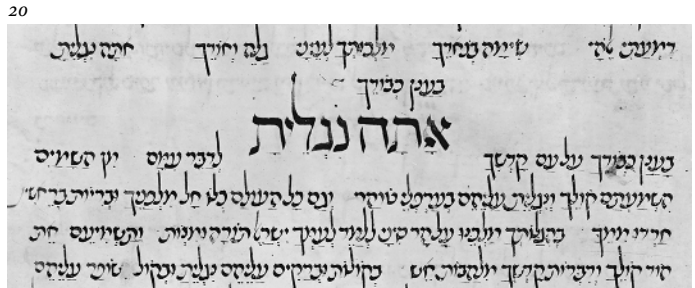 20
שימה בנאדך מלכותך גלה אתה נגלית
בענן כבודך
אתה נגלית
בענן כבודך על עם קדשך לדבר עמם מן השמים
השמעתם קולך ונגלית עליהם בערפלי טוהר וגם כל העולם כלו חל מלפניך ובריות בראשי
חרדו ממך בהגלותך מלכנו על הר סיני ללמד לעמך ישראל תורה ומצות ותשמיעם את
הוד קולך ודברות קדשך מלהבות אש בקולות וברקים עליהם נגלית ובקול שופר עליהם